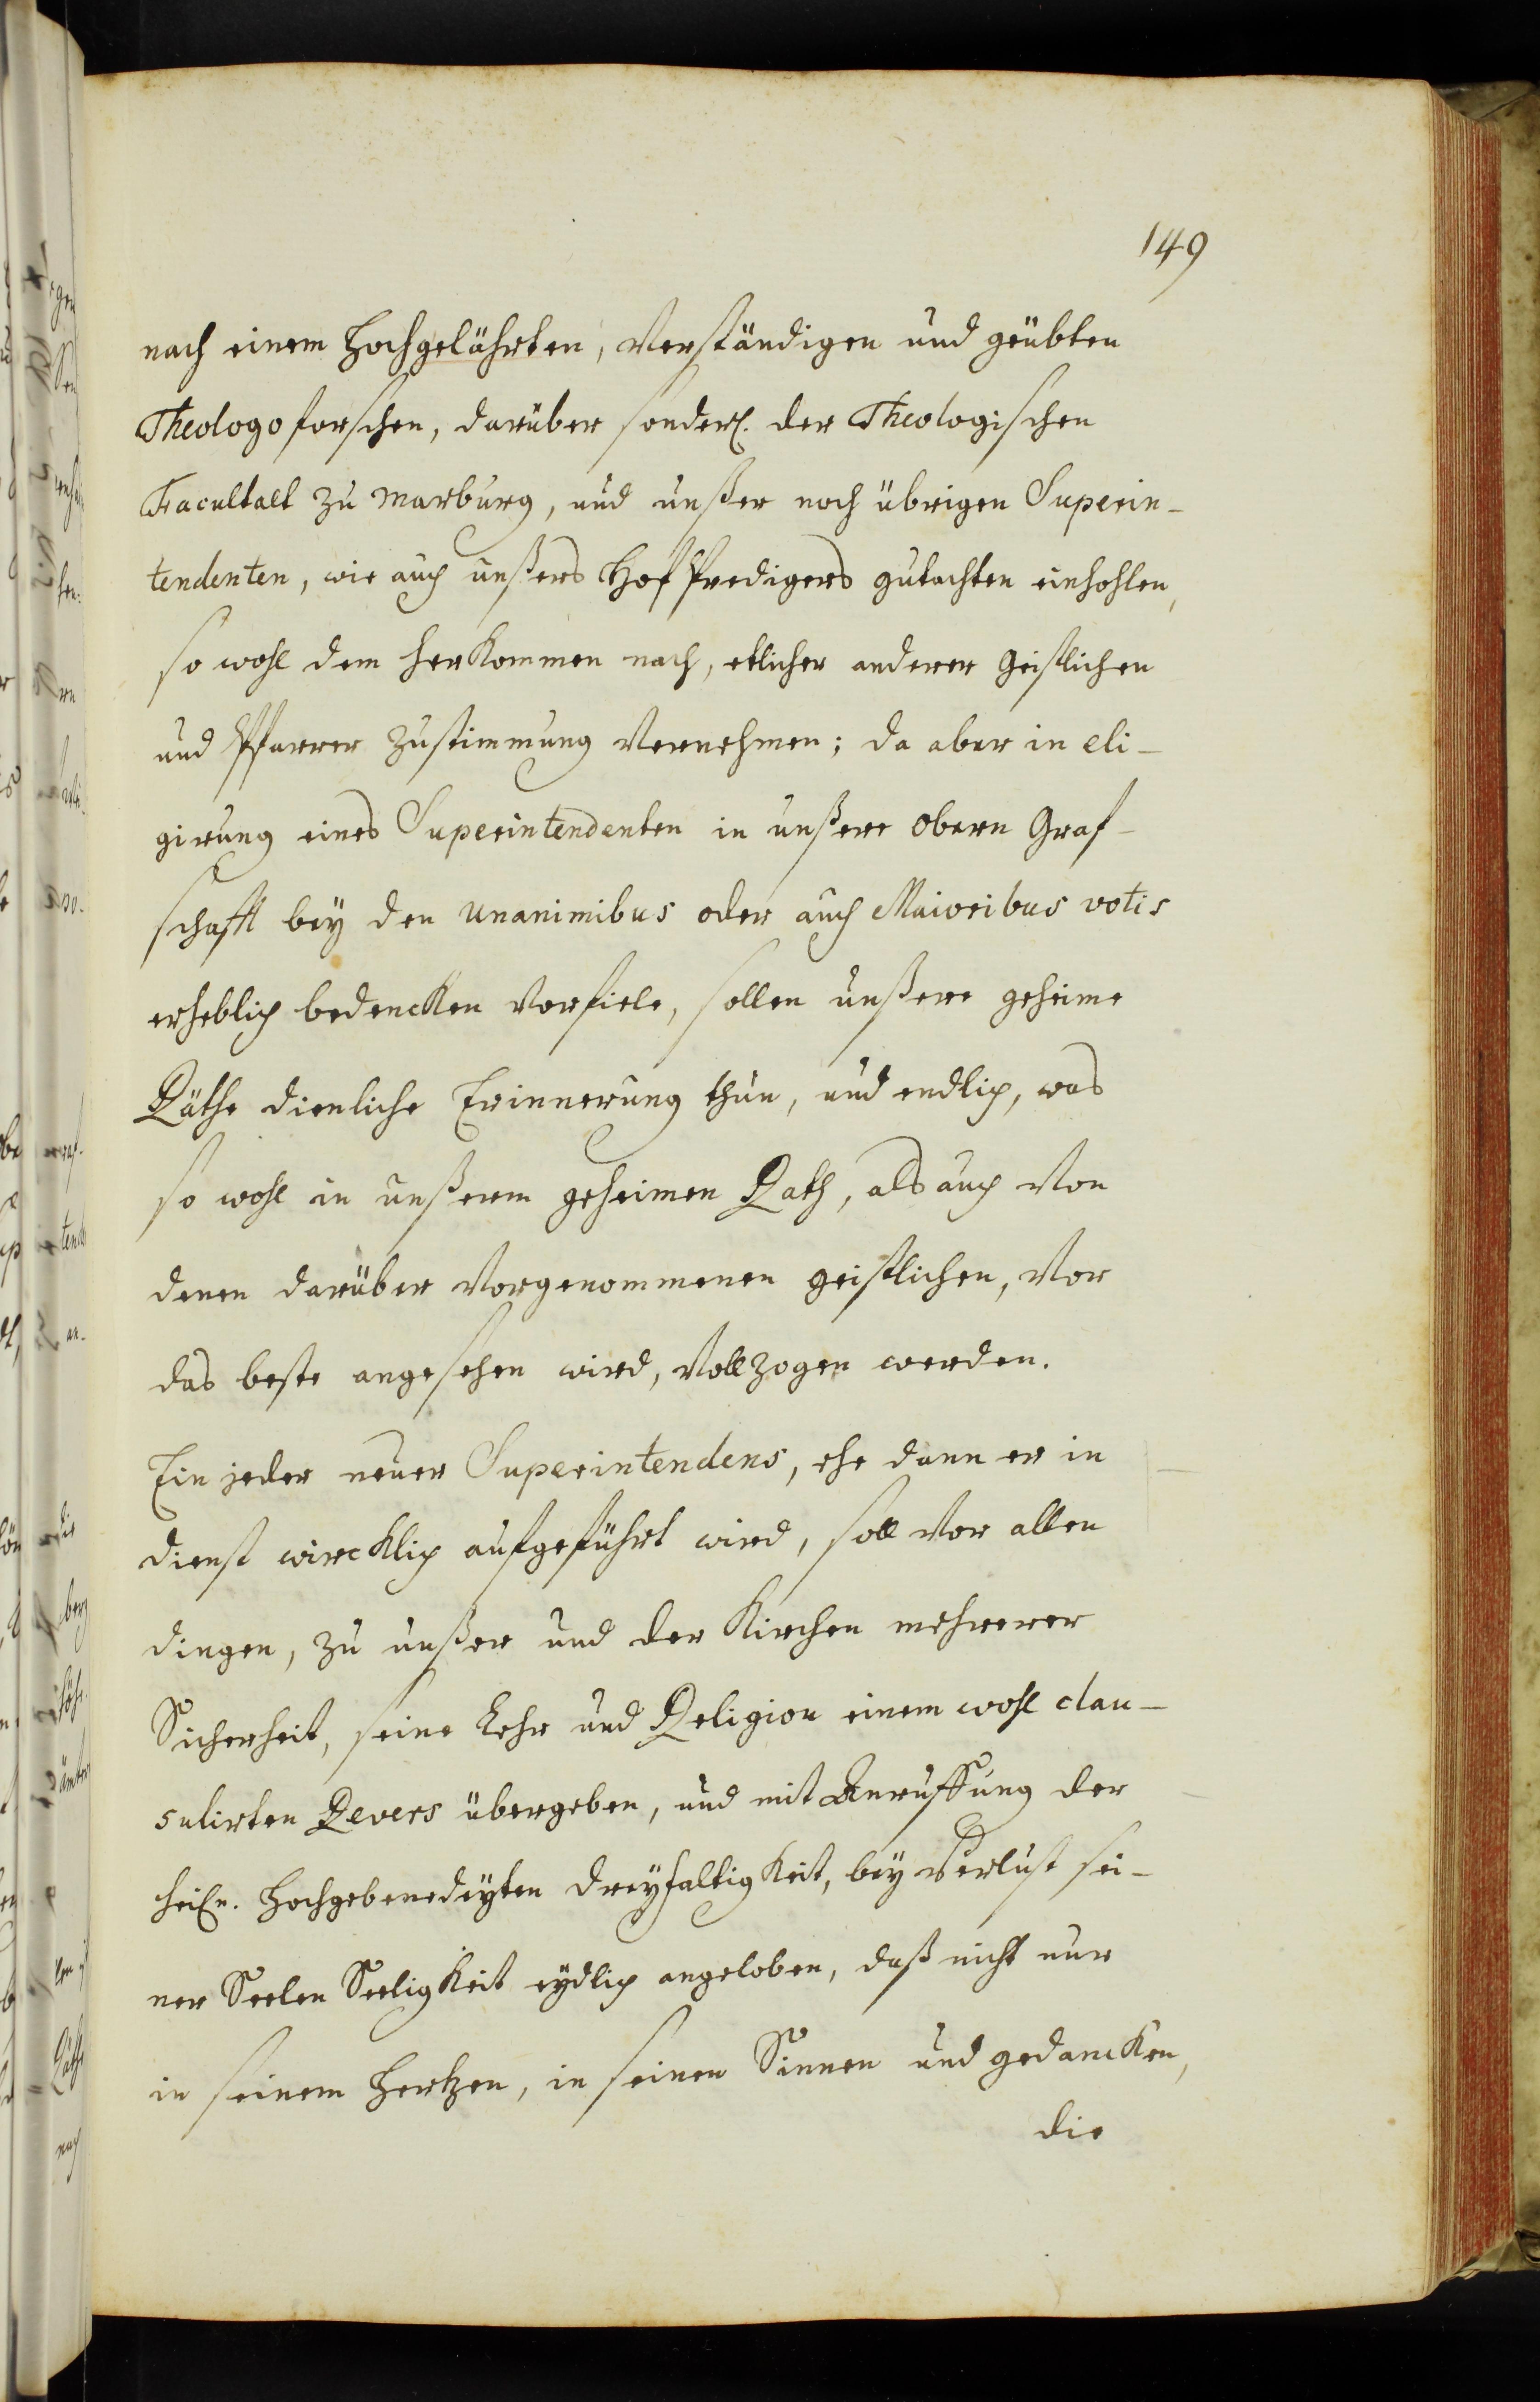 149
nach einem hochgelährten, Verständigen und geübten
Theologo forschen, darüber sonderl. der Theologischen
Facultatt zu Marburg, und unßer noch übrigen Superin-
tendenten, wie auch unßers Hof Predigers gutachten einhohlen,
so wohl dem herkommen nach, etlicher anderer Geistlichen
und Pfarrer Zustimmung Vernehmen; da aber in eli-
girung eines Superintendenten in unßere Obern Graf-
schafft bey den Unanimibus oder auch Maioribus votis
erheblich bedencken Vorfiele, sollen unßere geheime
Räthe dienliche Erinnerung thun, und endlich, was
so wohl in unßerm geheimen Rath, als auch Von
denen darüber Vorgenommenen geistlichen, Vor
das beste angesehen wird, Vollzogen werden.
Ein jeder neuer Superintendens, ehe dann er in
dienst wircklich aufgeführt wird, soll Vor allen
dingen, zu unßer und der Kirchen mehrerer
Sicherheit, seine Lehr und Religion einem wohl clau-
sulirten Revers übergeben, und mit Anruffung der
heiln. Hochgebenedeyten Dreyfaltigkeit, bey Verlust sei-
ner Seelen Seeligkeit eydlich angeloben, daß nicht nur
in seinem Hertzen, in seinen Sinnen und gedancken,
die